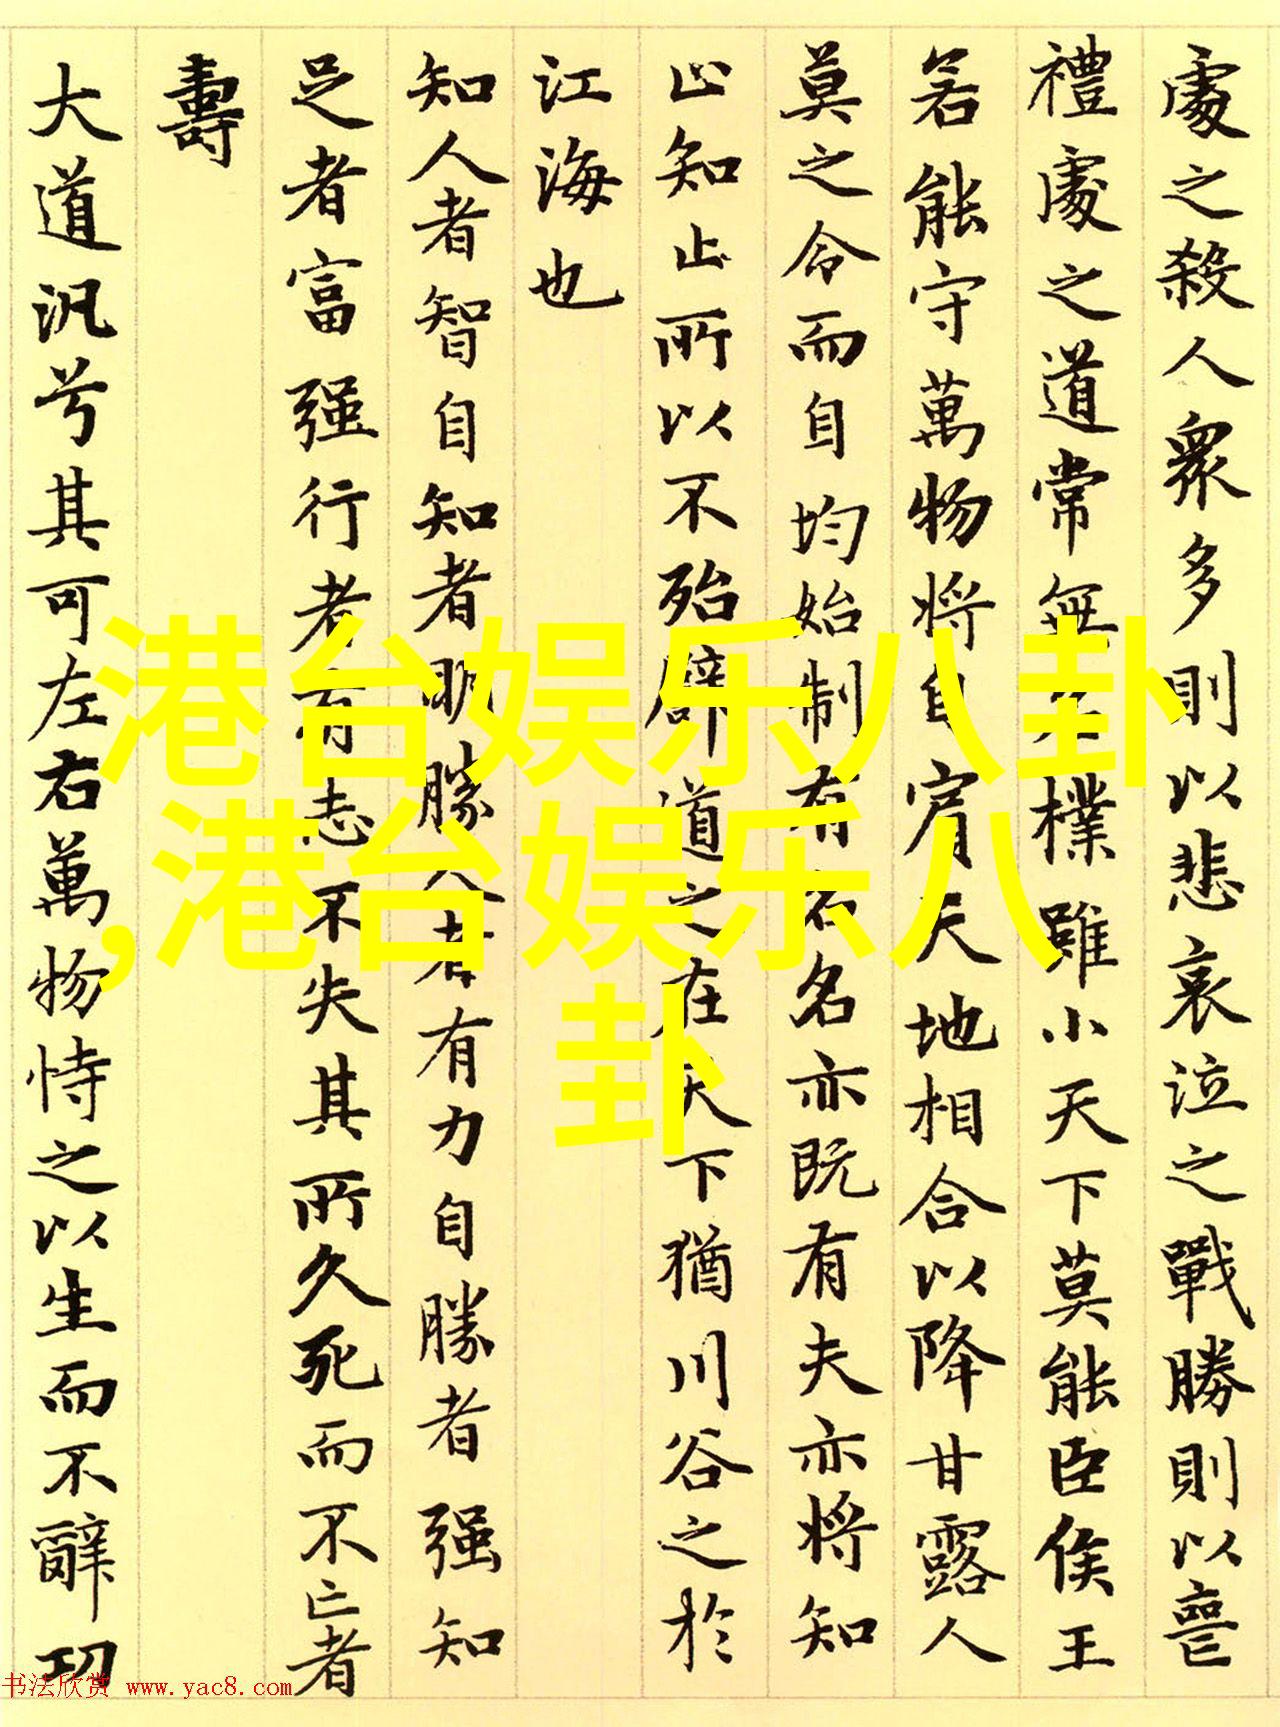 處之殺人衆多則以悲哀泣之戰勝則以喪
禮處之道常無名樸雖小天下莫能臣侯王
若能守萬物將自賓天地相合以降甘露人
莫之令而自均始制有名名亦既有夫亦將知
止知止所以不殆辟道之在天下猶川谷之於
江海也
知人者智自知者明勝人者有力自勝者强知
足者富强行者有志不失其所久死而不亡者
壽
大道汎兮其可左右萬物恃之以生而不辭功
港台娱乐八卦
,港台娱乐八
卦
书法欣赏 www.yac8.com